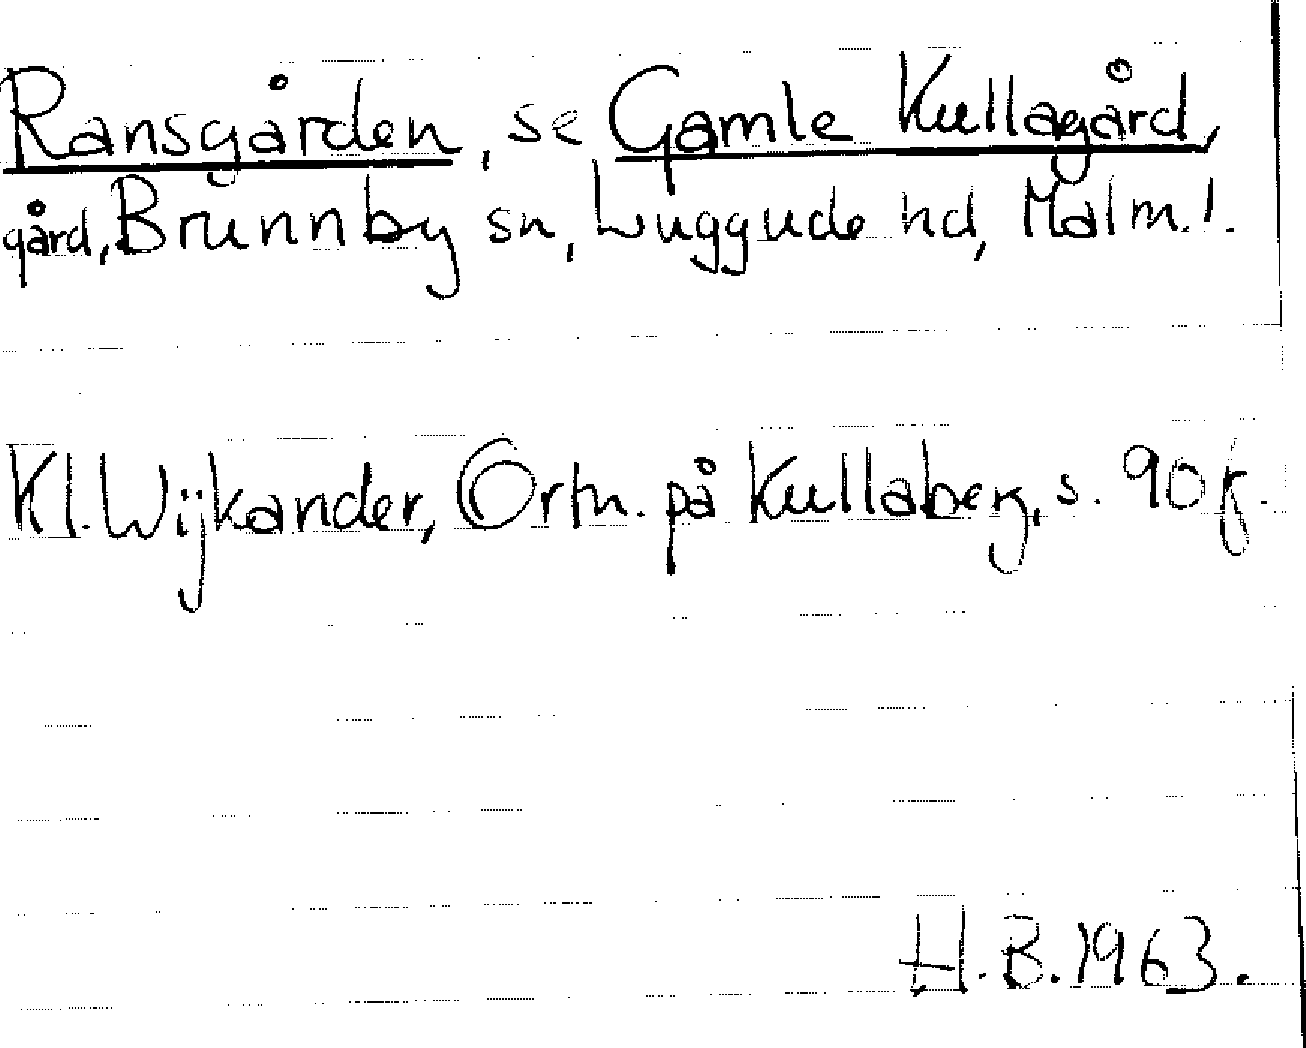 Ransgården, se Gamle Kullagård,
gård, Brunnby sn, Luggude hd, Malm. l.
Kl. Wijkander, Ortn. på Kullaberg, s. 90 f.
H. B. 1963.